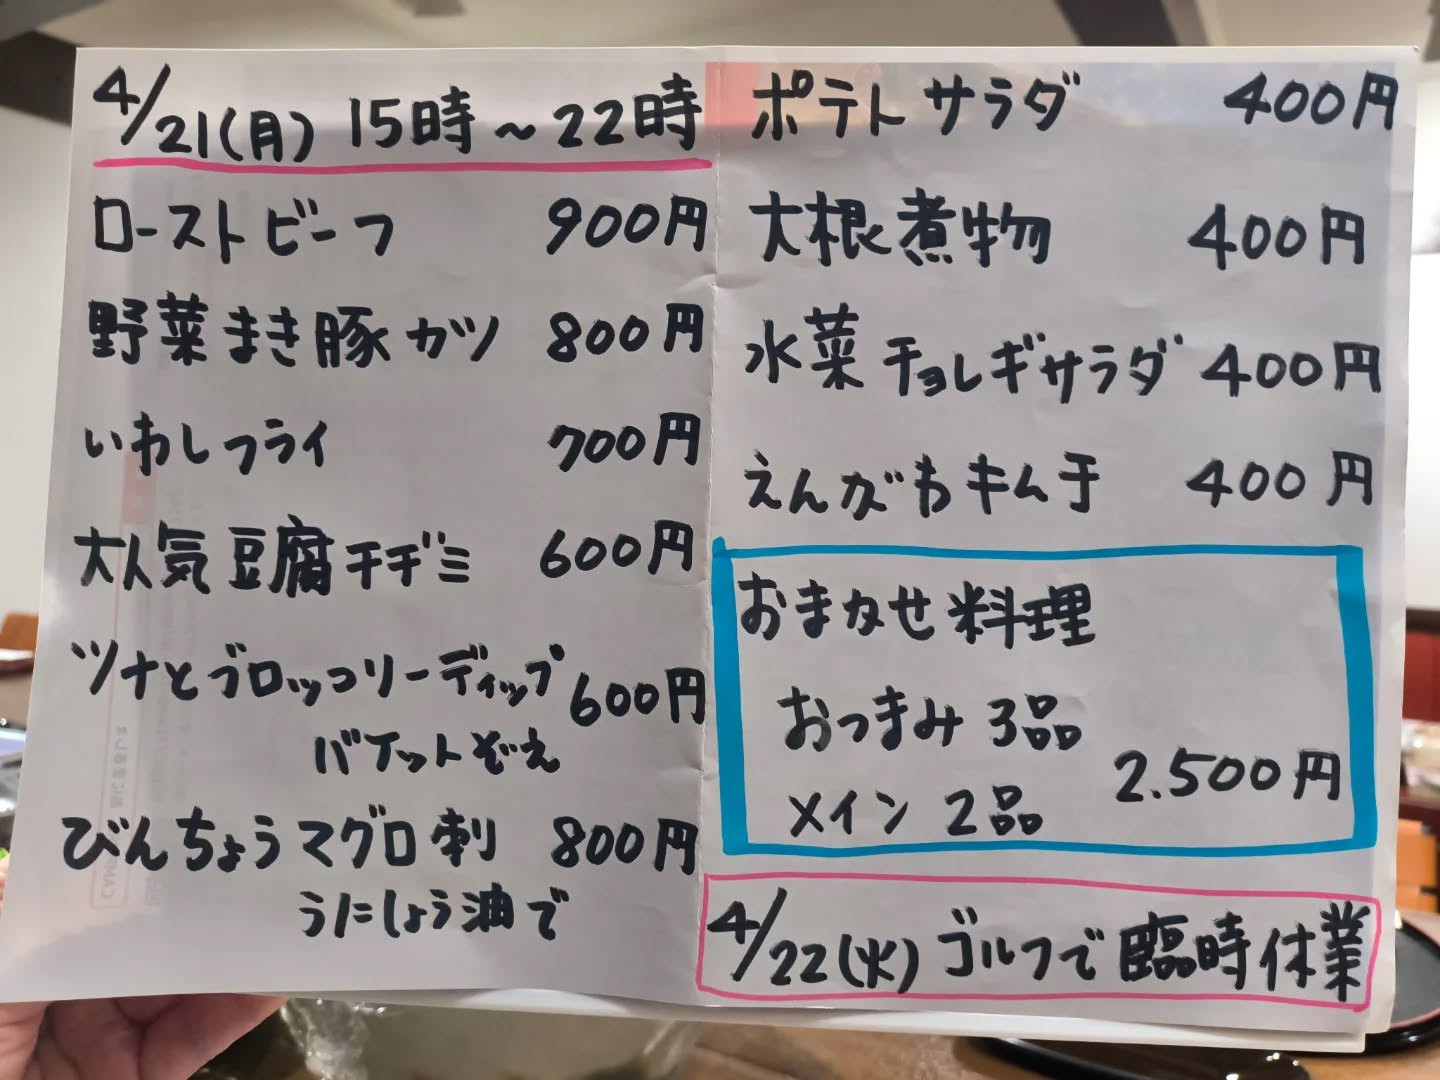 4/21(月) 15時～22時
ローストビーフ 900円
野菜まき豚カツ 800円
いわしフライ 700円
大人気豆腐チヂミ 600円
ツナとブロッコリーディップ 600円
バケットぞえ
びんちょうマグロ刺 800円
うにしょう油で
ポテトサラダ 400円
大根煮物 400円
水菜チョレギサラダ 400円
えんがわキムチ 400円
おまかせ料理
おつまみ 3品
メイン 2品 2.500円
4/22(火)ゴルフで臨時休業